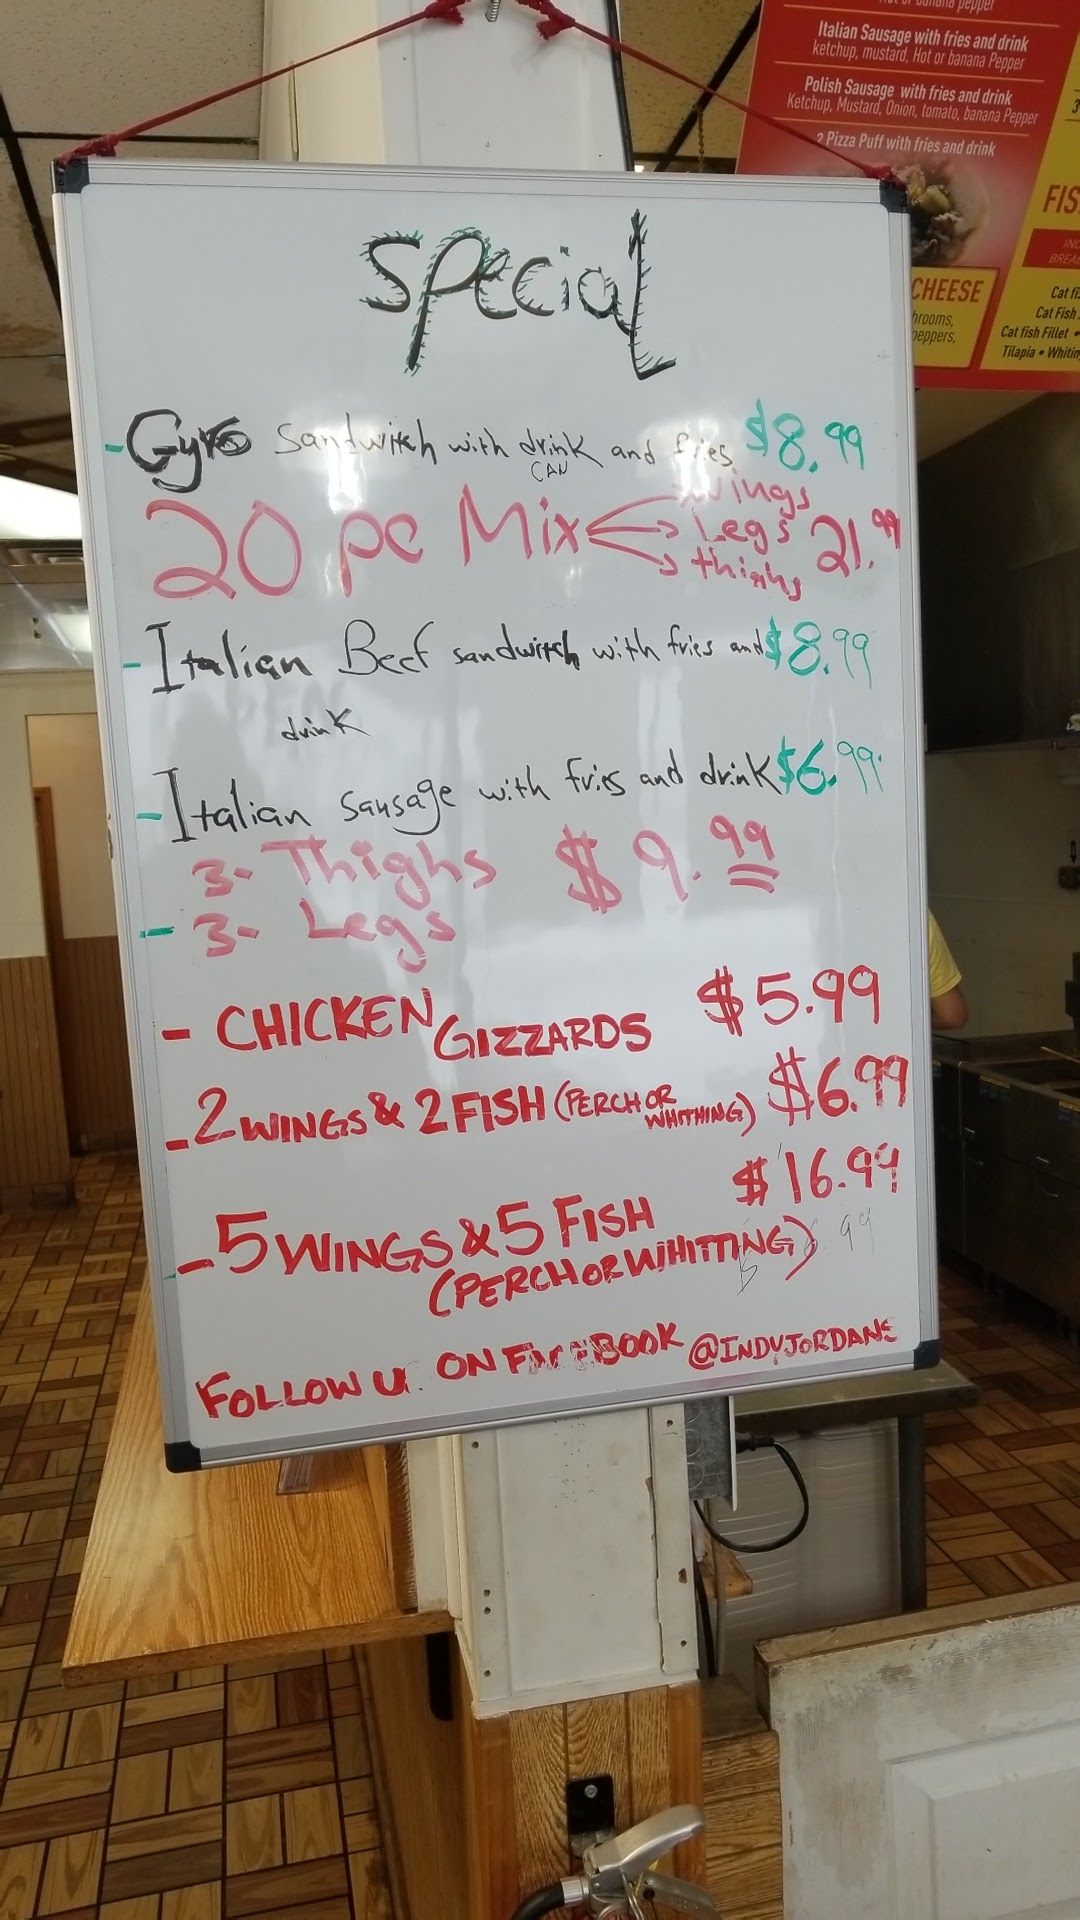 Hot or banana pepper
Italian Sausage with fries and drink
ketchup, mustard, Hot or banana Pepper
Polish Sausage with fries and drink
Ketchup, Mustard, Onion, tomato, banana Pepper
2 Pizza Puff with fries and drink
FIS
CHEESE
Cat fi
Cat Fish
Cat fish Fillet •
Tilapia • Whitin
hrooms,
peppers,
Special
- Gyro Sandwitch with drink and fries $8.99
CAN
20 pc Mix wings
Legs 21.99
thighs
- Italian Beef sandwitch with fries and $8.99
drink
- Italian sausage with fries and drink $6.99
3- Thighs $9.99
- 3- Legs
- CHICKEN GIZZARDS $5.99
- 2 WINGS & 2 FISH (PERCH OR WHITHING) $6.99
$16.99
- 5 WINGS & 5 FISH
(PERCH OR WHITTING)
FOLLOW U ON FACEBOOK @INDYJORDANS